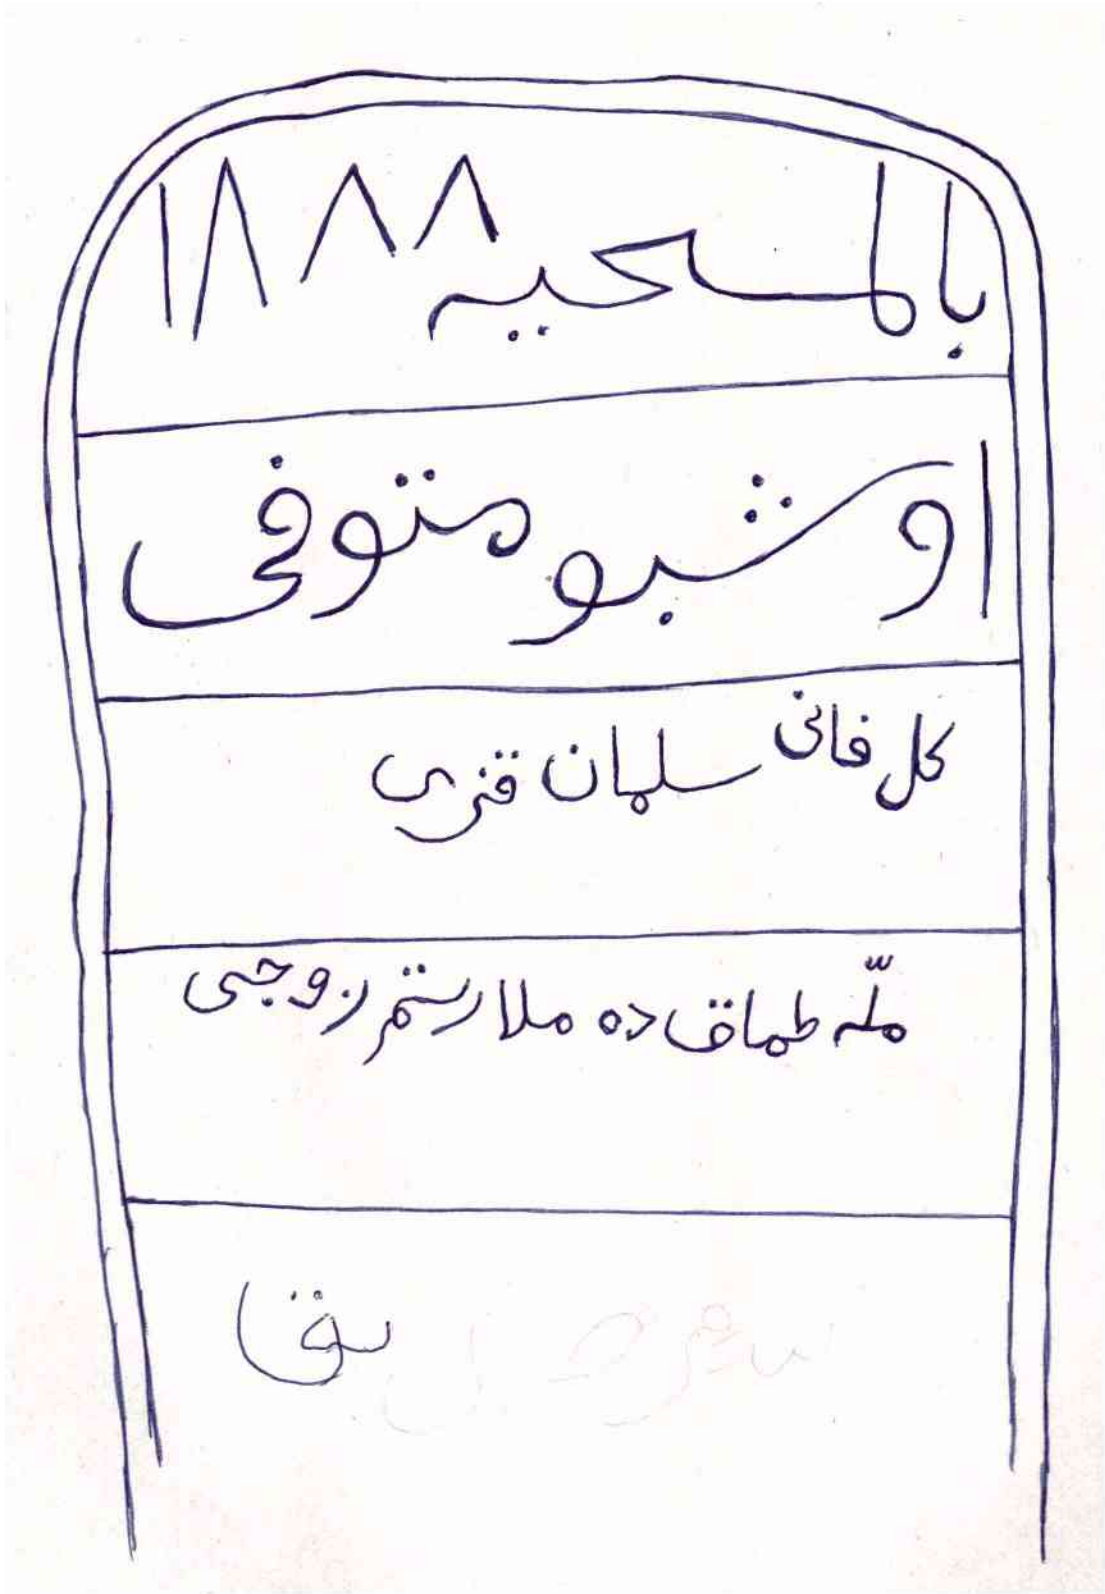 بالمسحیه ١٨٨٨
اوشبو متوفی
کل فانی سلیمان قزی
ملّه طماق ده ملا رستم زوجی